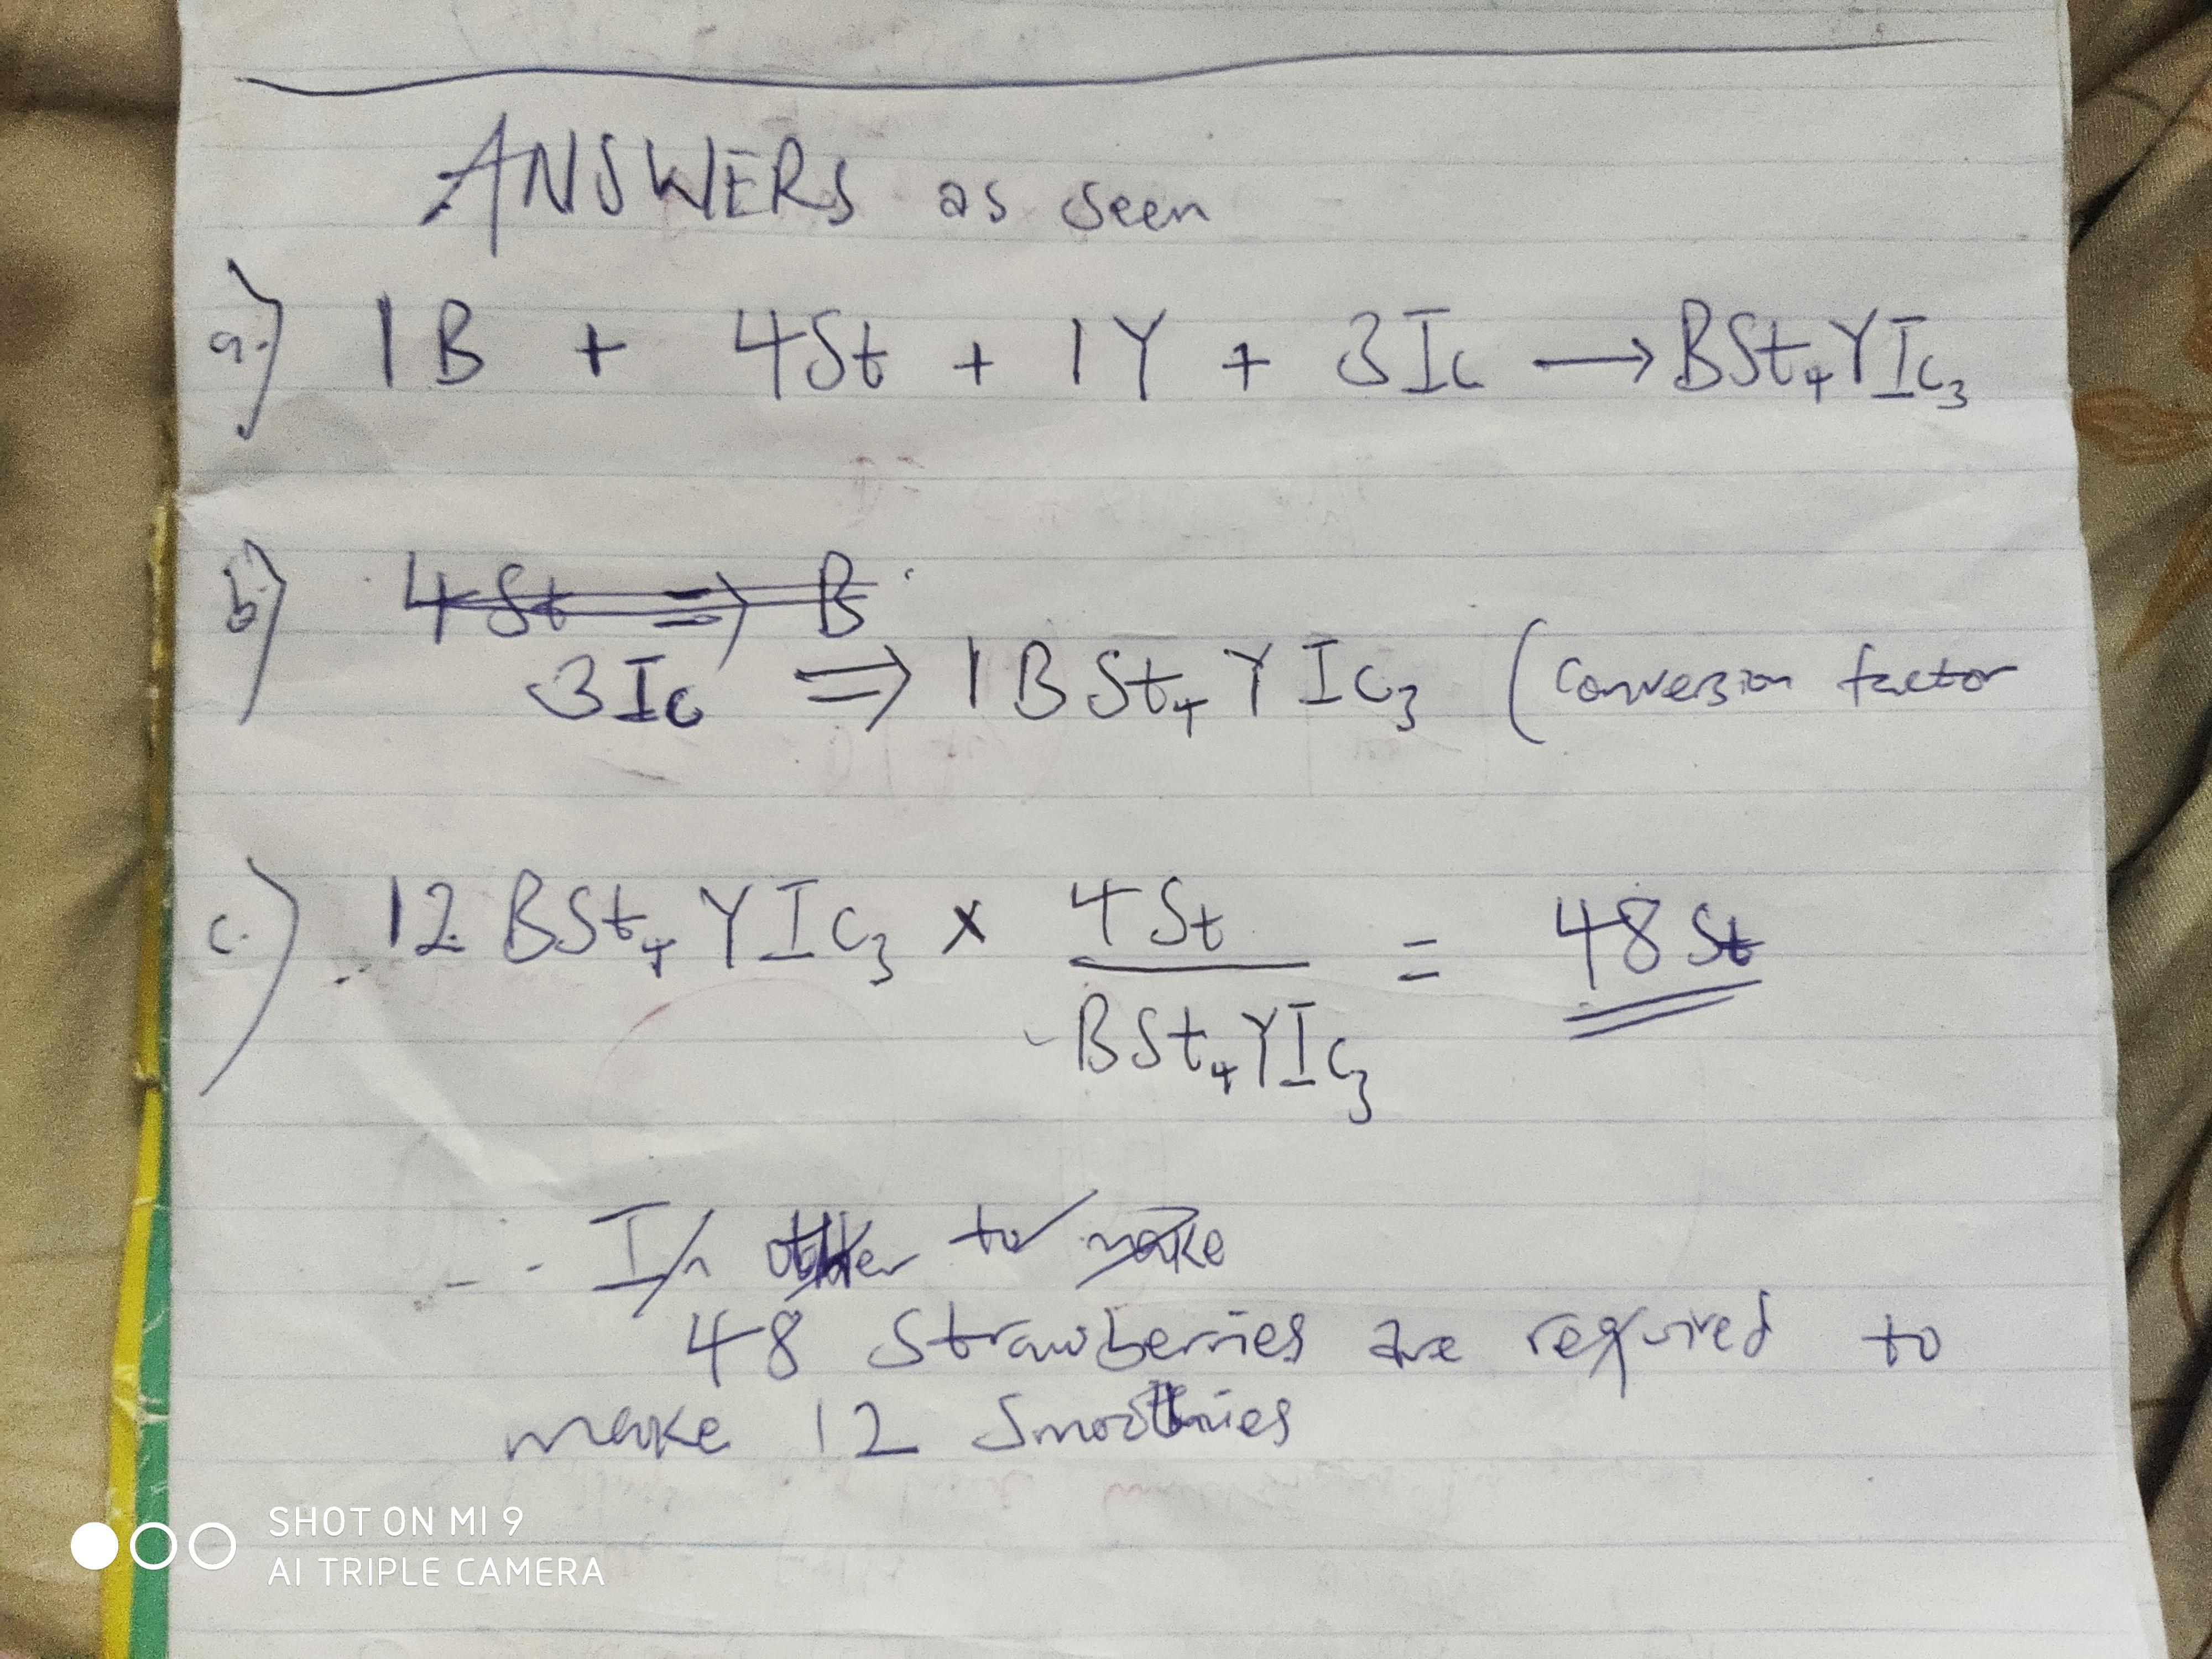 ANSWERS as seen
a.) 1B + 4St + 1Y + 3Ic → BSt₄YIc₃
b.) 4St ⇒ B
3Ic ⇒ 1BSt₄YIc₃ (Conversion factor
c.) 12 BSt₄YIc₃ x 4St = 48 St
BSt₄YIc₃
In other to make
48 Strawberries are required to
make 12 Smoothies
SHOT ON MI 9
AI TRIPLE CAMERA